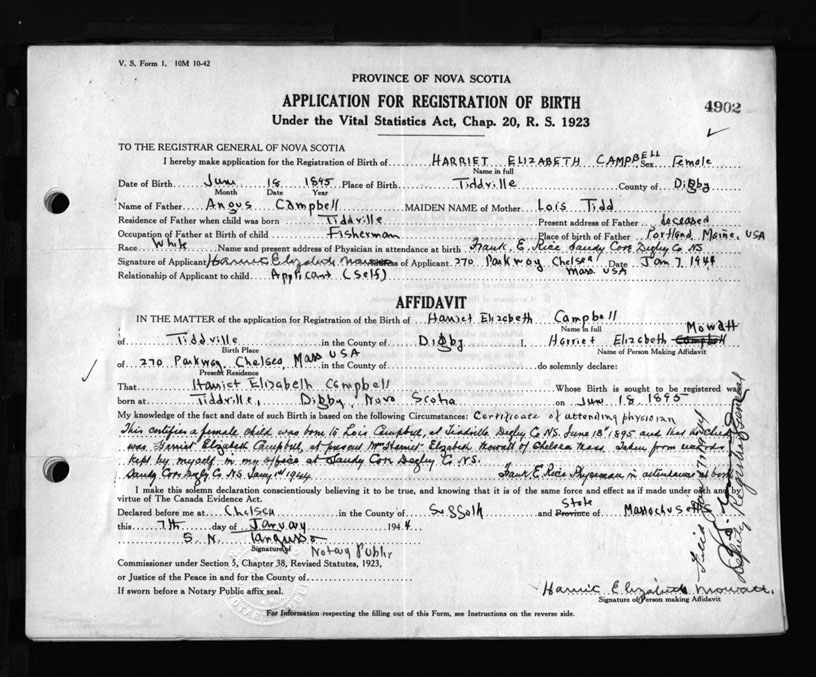 V. S. Form 1. 10M 10-42
PROVINCE OF NOVA SCOTIA
APPLICATION FOR REGISTRATION OF BIRTH
4902
Under the Vital Statistics Act, Chap. 20, R. S. 1923
TO THE REGISTRAR GENERAL OF NOVA SCOTIA
I hereby make application for the Registration of Birth of HARRIET ELIZABETH CAMPBELL Sex Female
Name in full
Date of Birth June 18 1895 Place of Birth Tiddville County of Digby
Month Date Year
Name of Father Angus Campbell MAIDEN NAME of Mother Lois Tidd
Residence of Father when child was born Tiddville Present address of Father deceased
Occupation of Father at Birth of child Fisherman Place of birth of Father Portland Maine, USA
Race White Name and present address of Physician in attendance at birth Frank E. Rice Sandy Cove Digby Co NS
Signature of Applicant Harriet Elizabeth Mowatt of Applicant 270 Parkway Chelsea Date Jan 7 1944
Mass USA
Relationship of Applicant to child Applicant (Self)
AFFIDAVIT
IN THE MATTER of the application for Registration of the Birth of Harriet Elizabeth Campbell
Name in full
Mowatt
of Tiddville in the County of Digby I, Harriet Elizabeth Campbell
Birth Place Name of Person Making Affidavit
of 270 Parkway, Chelsea, Mass USA in the County of do solemnly declare:
Present Residence
That Harriet Elizabeth Campbell Whose Birth is sought to be registered was
born at Tiddville, Digby, Nova Scotia on June 18 1895
My knowledge of the fact and date of such Birth is based on the following Circumstances: Certificate of attending physician
This certifies a female child was born to Lois Campbell, at Tiddville Digby Co N.S. June 18th 1895 and
was Harriet Elizabeth Campbell, at present Mrs Harriet Elizabeth Mowatt of Chelsea Mass. Taken from records
kept by myself in my office at Sandy Cove Digby Co N.S.
Sandy Cove Digby Co N.S. Jany 1st 1944. Frank E. Rice Physician in attendance at birth
I make this solemn declaration conscientiously believing it to be true, and knowing that it is of the same force and effect as if made under oath and
virtue of The Canada Evidence Act.
State
Declared before me at Chelsea in the County of Suffolk and Province of Massachusetts
this 7th day of January 1944
S. N.
Signature of Notary Public
Commissioner under Section 5, Chapter 38, Revised Statutes, 1923,
or Justice of the Peace in and for the County of
If sworn before a Notary Public affix seal.
Harriet Elizabeth Mowatt
Signature of Person making Affidavit
For Information respecting the filling out of this Form, see Instructions on the reverse side.
Deputy Registrar General